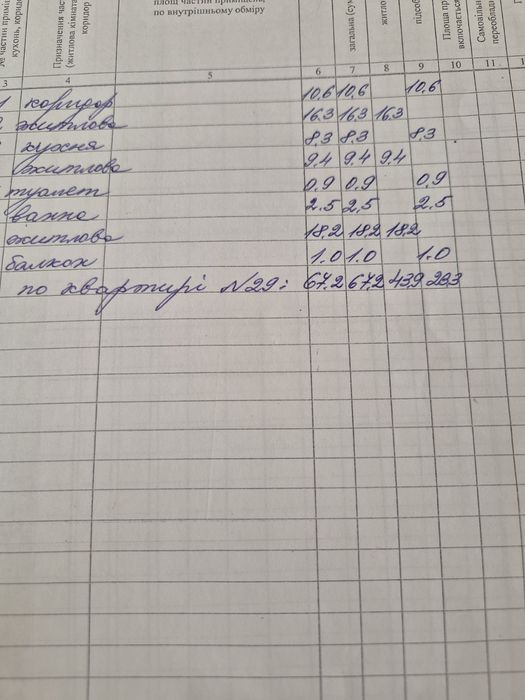 № частин приміщ
кухонь, коридо
Призначення час
(житлова кімната
коридор
площ частин приміщень,
по внутрішньому обміру
загальна (су
житло
підсоб
Площа пр
включається
Самовільн
переобладн
3 4 5 6 7 8 9 10 11 1
1 коридор 10,6 10,6 10,6
2 житлова 16.3 16.3 16.3
кухня 8.3 8.3 8.3
житлова 9.4 9.4 9.4
туалет 0,9 0,9 0,9
ванна 2.5 2,5 2.5
житлова 18,2 18,2 18,2
балкон 1.0 1.0 1.0
по квартирі N29: 67.2 67,2 43,9 23,3